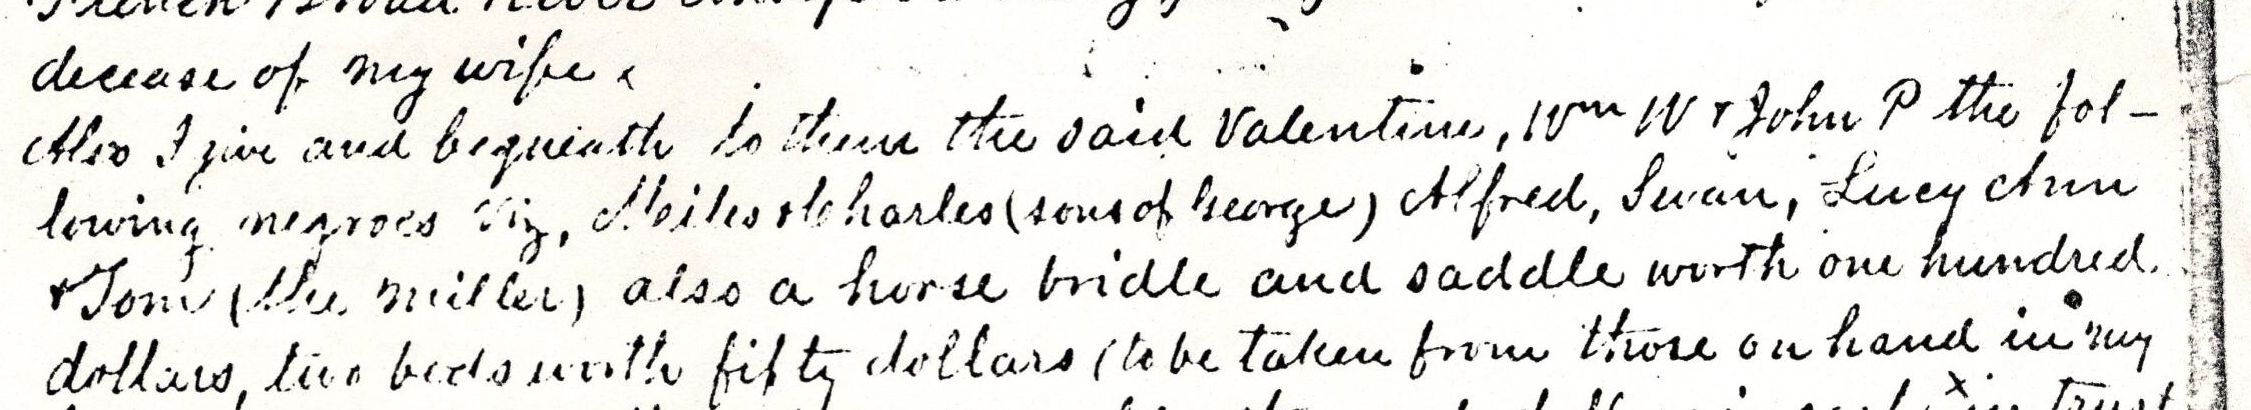 French Broad River
decease of my wife.
Also I give and bequeath to them the said Valentine, Wm W & John P the fol-
lowing negroes viz, Miles & Charles (sons of George) Alfred, Swan, Lucy Ann
& Tom (the miller) also a horse bridle and saddle worth one hundred.
dollars, two beds worth fifty dollars (to be taken from those on hand in my
x in trust